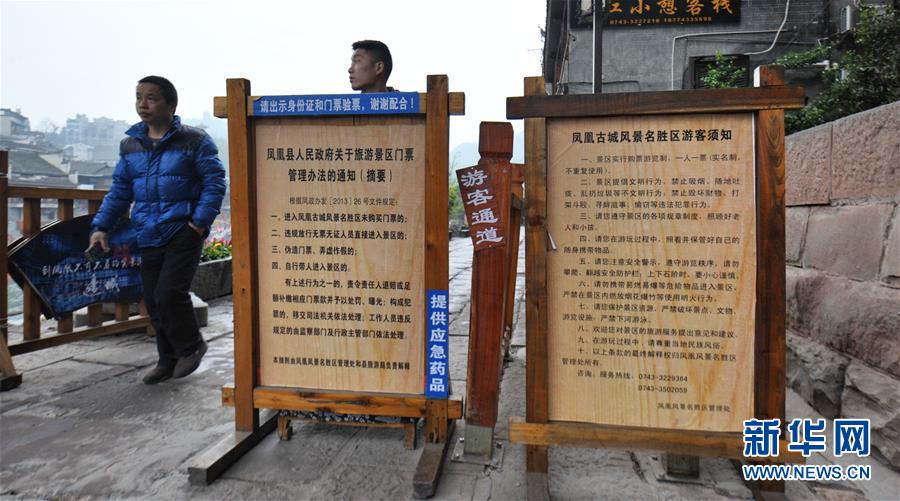 工小憩客栈
0743-3227218 18774335333
请出示身份证和门票验票，谢谢配合！
凤凰县人民政府关于旅游景区门票
管理办法的通知（摘要）
根据凤政办发［2013］26号文件规定：
一、进入凤凰古城风景名胜区未购买门票的；
二、违规放行无票无证人员直接进入景区的；
三、伪造门票、弄虚作假的；
四、自行带人进入景区的。
有上述行为之一的，责令责任人退赔或足
额补缴相应门票款并予以处罚、曝光；构成犯
罪的，移交司法机关依法处理；工作人员违反
规定的由监察部门及行政主管部门依法处理。
本细则由凤凰风景名胜区管理处和县旅游局负责解释
提供应急药品
游客通道
凤凰古城风景名胜区游客须知
一、景区实行购票游览制，一人一票（实名制，
不重复使用）。
二、景区提倡文明行为，禁止吸烟、随地吐
痰、乱扔垃圾等不文明行为，禁止毁坏财物、打
架斗殴、寻衅滋事、偷窃等违法犯罪行为。
三、请您遵守景区的各项规章制度，照顾好老
人和小孩。
四、请您在游玩过程中，照看并保管好自己的
随身携带物品。
五、请您注意安全警示，遵守游览秩序，请勿
攀爬、翻越安全防护栏；上下石阶时，要小心谨慎。
六、请勿携带易燃易爆等危险物品进入景区，
严禁在景区内燃放烟花爆竹等使用明火行为。
七、请您保护景区资源，严禁破坏景点、文物、
游览设施，严禁下河游泳。
八、欢迎您对景区的旅游服务提出意见和建议。
九、在游玩过程中，请尊重当地民族风俗。
十、以上条款的最终解释权归凤凰风景名胜区
管理处所有。
咨询、服务热线：0743-3229364
0743-3502059
凤凰风景名胜区管理处
新华网
WWW.NEWS.CN